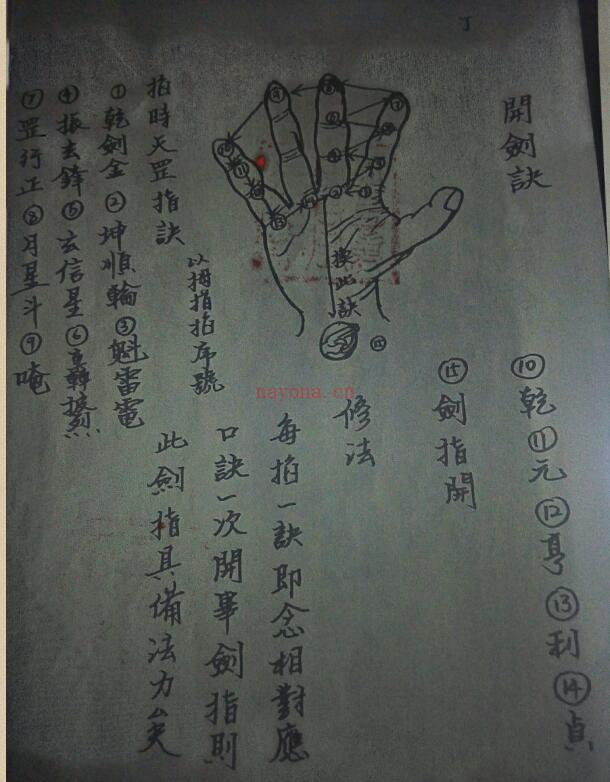 丁
開劍訣
掐時天罡指訣
①乾劍金②坤順輪③魁雷電
④振去鋒⑤玄信星⑥轟
⑦罡行正⑧月星斗⑨唵
以拇指掐序號
換此訣
⑮
⑩乾⑪元⑫亨⑬利⑭貞
⑮劍指開
修法
每掐一訣即念相對應
口訣一次開畢劍指則
此劍指具備法力矣
nayona.cn